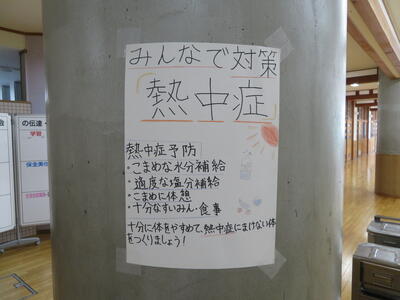 みんなで対策
「熱中症」
熱中症予防
・こまめな水分補給
・適度な塩分補給
・こまめに休憩
・十分なすいみん・食事
十分に体をやすめて、熱中症にまけない体
をつくりましょう！
の伝達・
学習
保全美化
会